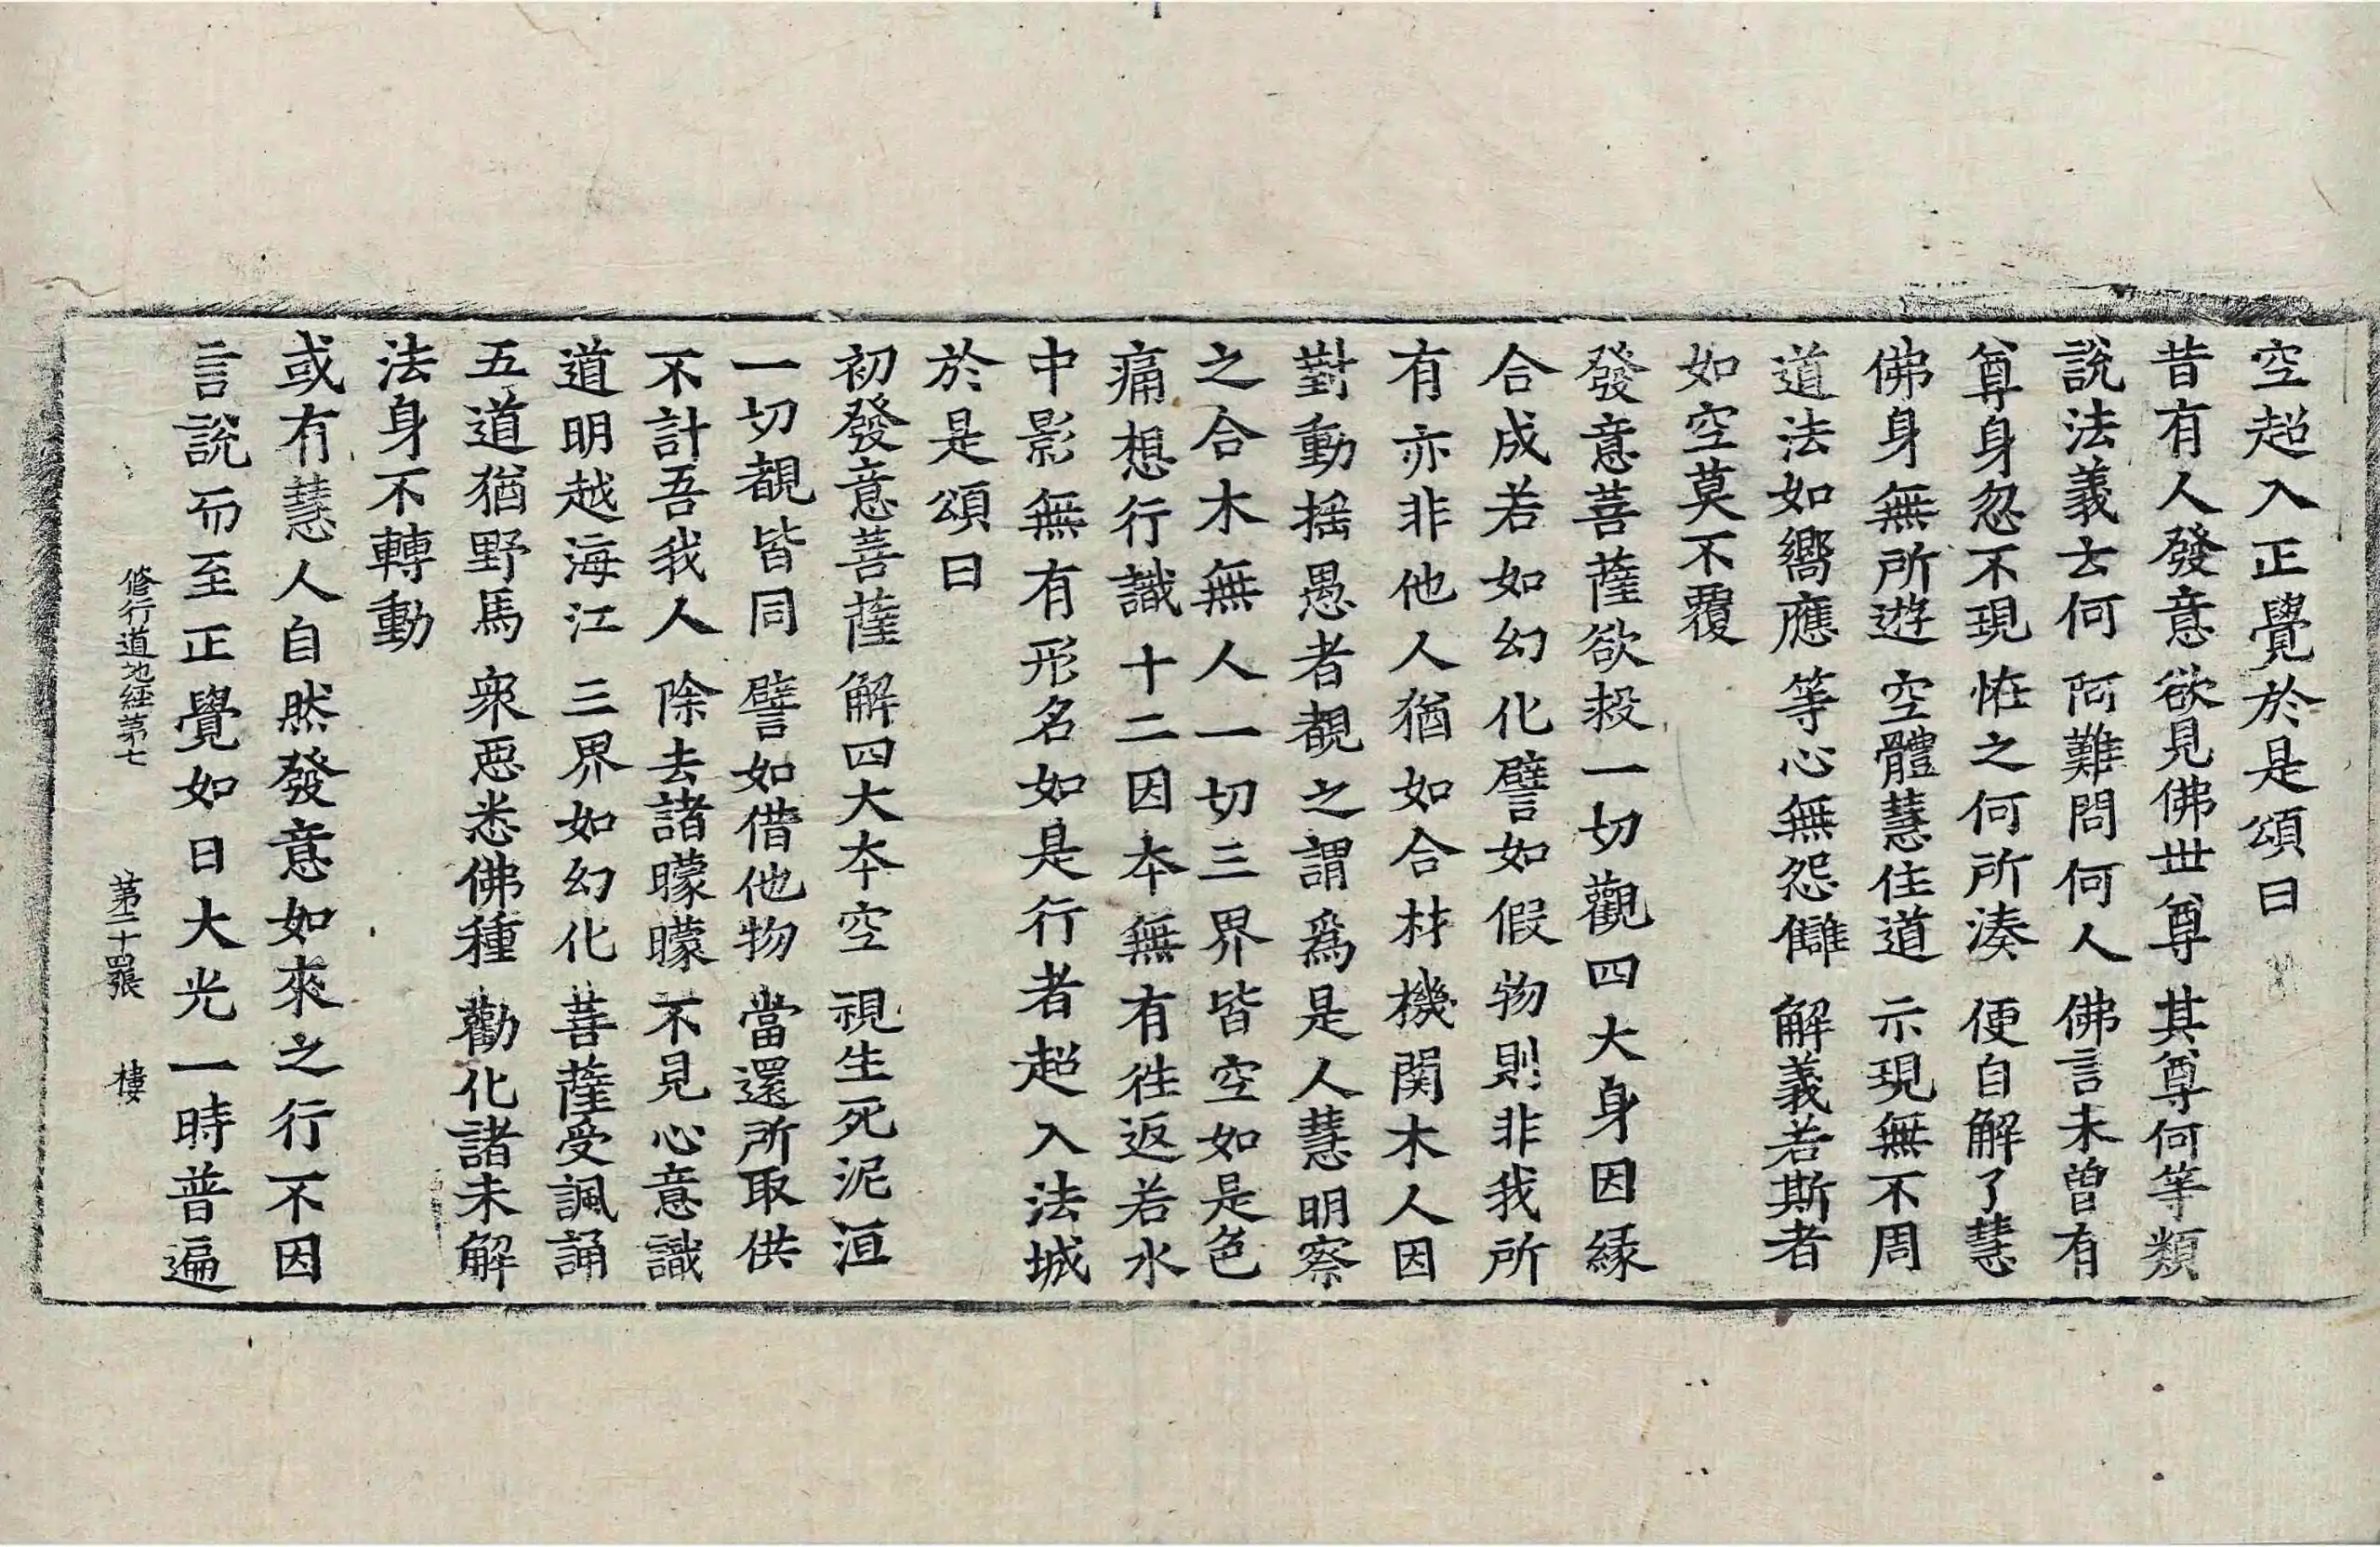 空超入正覺於是頌曰
昔有人發意欲見佛世尊 其尊何等類
說法義云何 阿難問何人 佛言未曾有
尊身忽不現 恠之何所湊 便自解了慧
佛身無所遊 空體慧住道 示現無不周
道法如嚮應 等心無怨讎 解義若斯者
如空莫不覆
發意菩薩欲投一切觀四大身因緣
合成若如幻化譬如假物則非我所
有亦非他人猶如合材機関木人因
對動揺愚者覩之謂爲是人慧明察
之合木無人一切三界皆空如是色
痛想行識十二因本無有徃返若水
中影無有形名如是行者超入法城
於是頌曰
初發意菩薩 解四大本空 視生死泥洹
一切覩皆同 譬如借他物 當還所取供
不計吾我人 除去諸曚曚 不見心意識
道明越海江 三界如幻化 菩薩受諷誦
五道猶野馬 衆惡悉佛種 勸化諸未解
法身不轉動
或有慧人自然發意如來之行不因
言說而至正覺如日大光一時普遍
修行道地経苐七 苐二十四張 棲